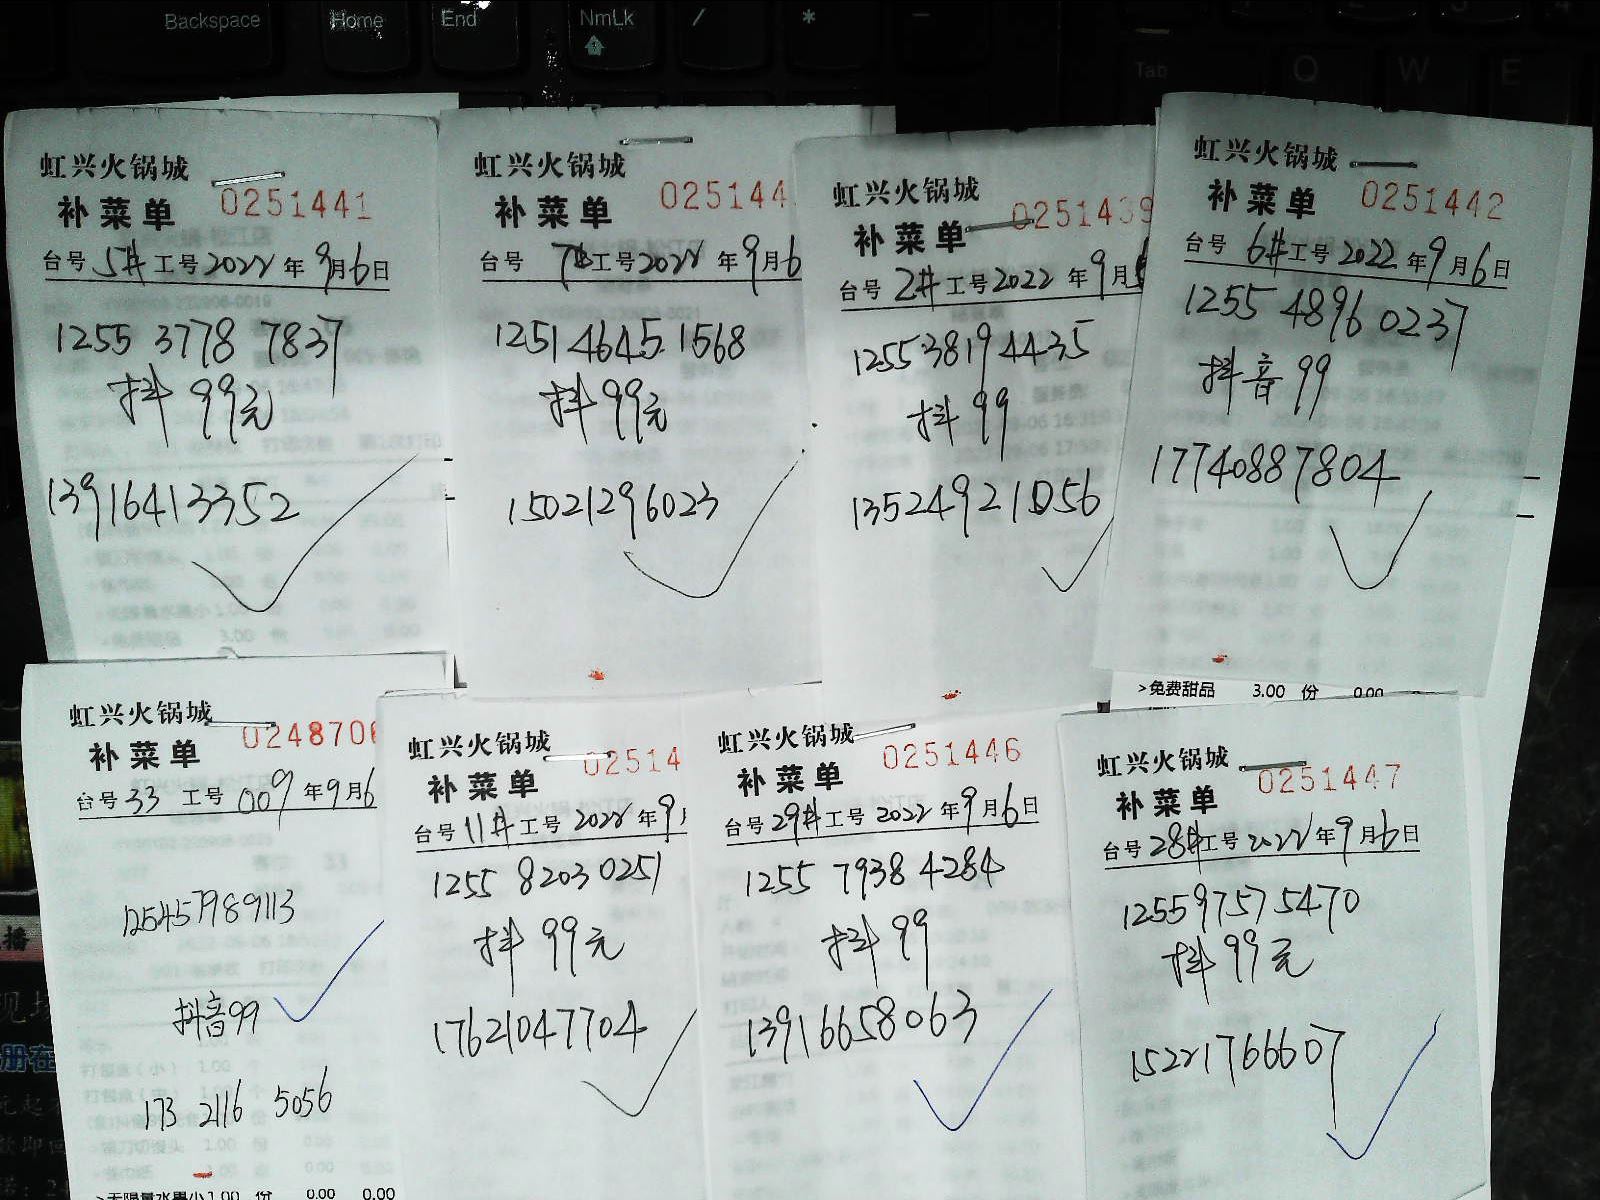 Backspace
Home
End
NmLk
/
*
-
Tab
Q
W
E
虹兴火锅城
补菜单
0251441
台号 5# 工号 2022 年 9月6日
1255 3778 7837
抖 99元
13916413352
虹兴火锅城
补菜单
025144
台号 7# 工号 2022 年 9月6
1251 4645 1568
抖 99元
15021296023
虹兴火锅城
补菜单
0251439
台号 2# 工号 2022 年 9月6
1255 3819 4435
抖 99
13524921056
虹兴火锅城
补菜单
0251442
台号 6# 工号 2022 年 9月6日
1255 4896 0237
抖音 99
17740887804
>免费甜品 3.00 份 0.00
虹兴火锅城
补菜单
0248706
台号 33 工号 009 年 9月6
125457989113
抖音99
173 2116 5056
>无限量水果小1.00 份 0.00 0.00
虹兴火锅城
补菜单
02514
台号 11# 工号 2022 年 9
1255 8203 0251
抖 99元
17621047704
虹兴火锅城
补菜单
0251446
台号 29# 工号 2022 年 9月6日
1255 7938 4284
抖 99
13916658063
虹兴火锅城
补菜单
0251447
台号 28# 工号 2022 年 9月6日
1255 9757 5470
抖 99元
15221766607